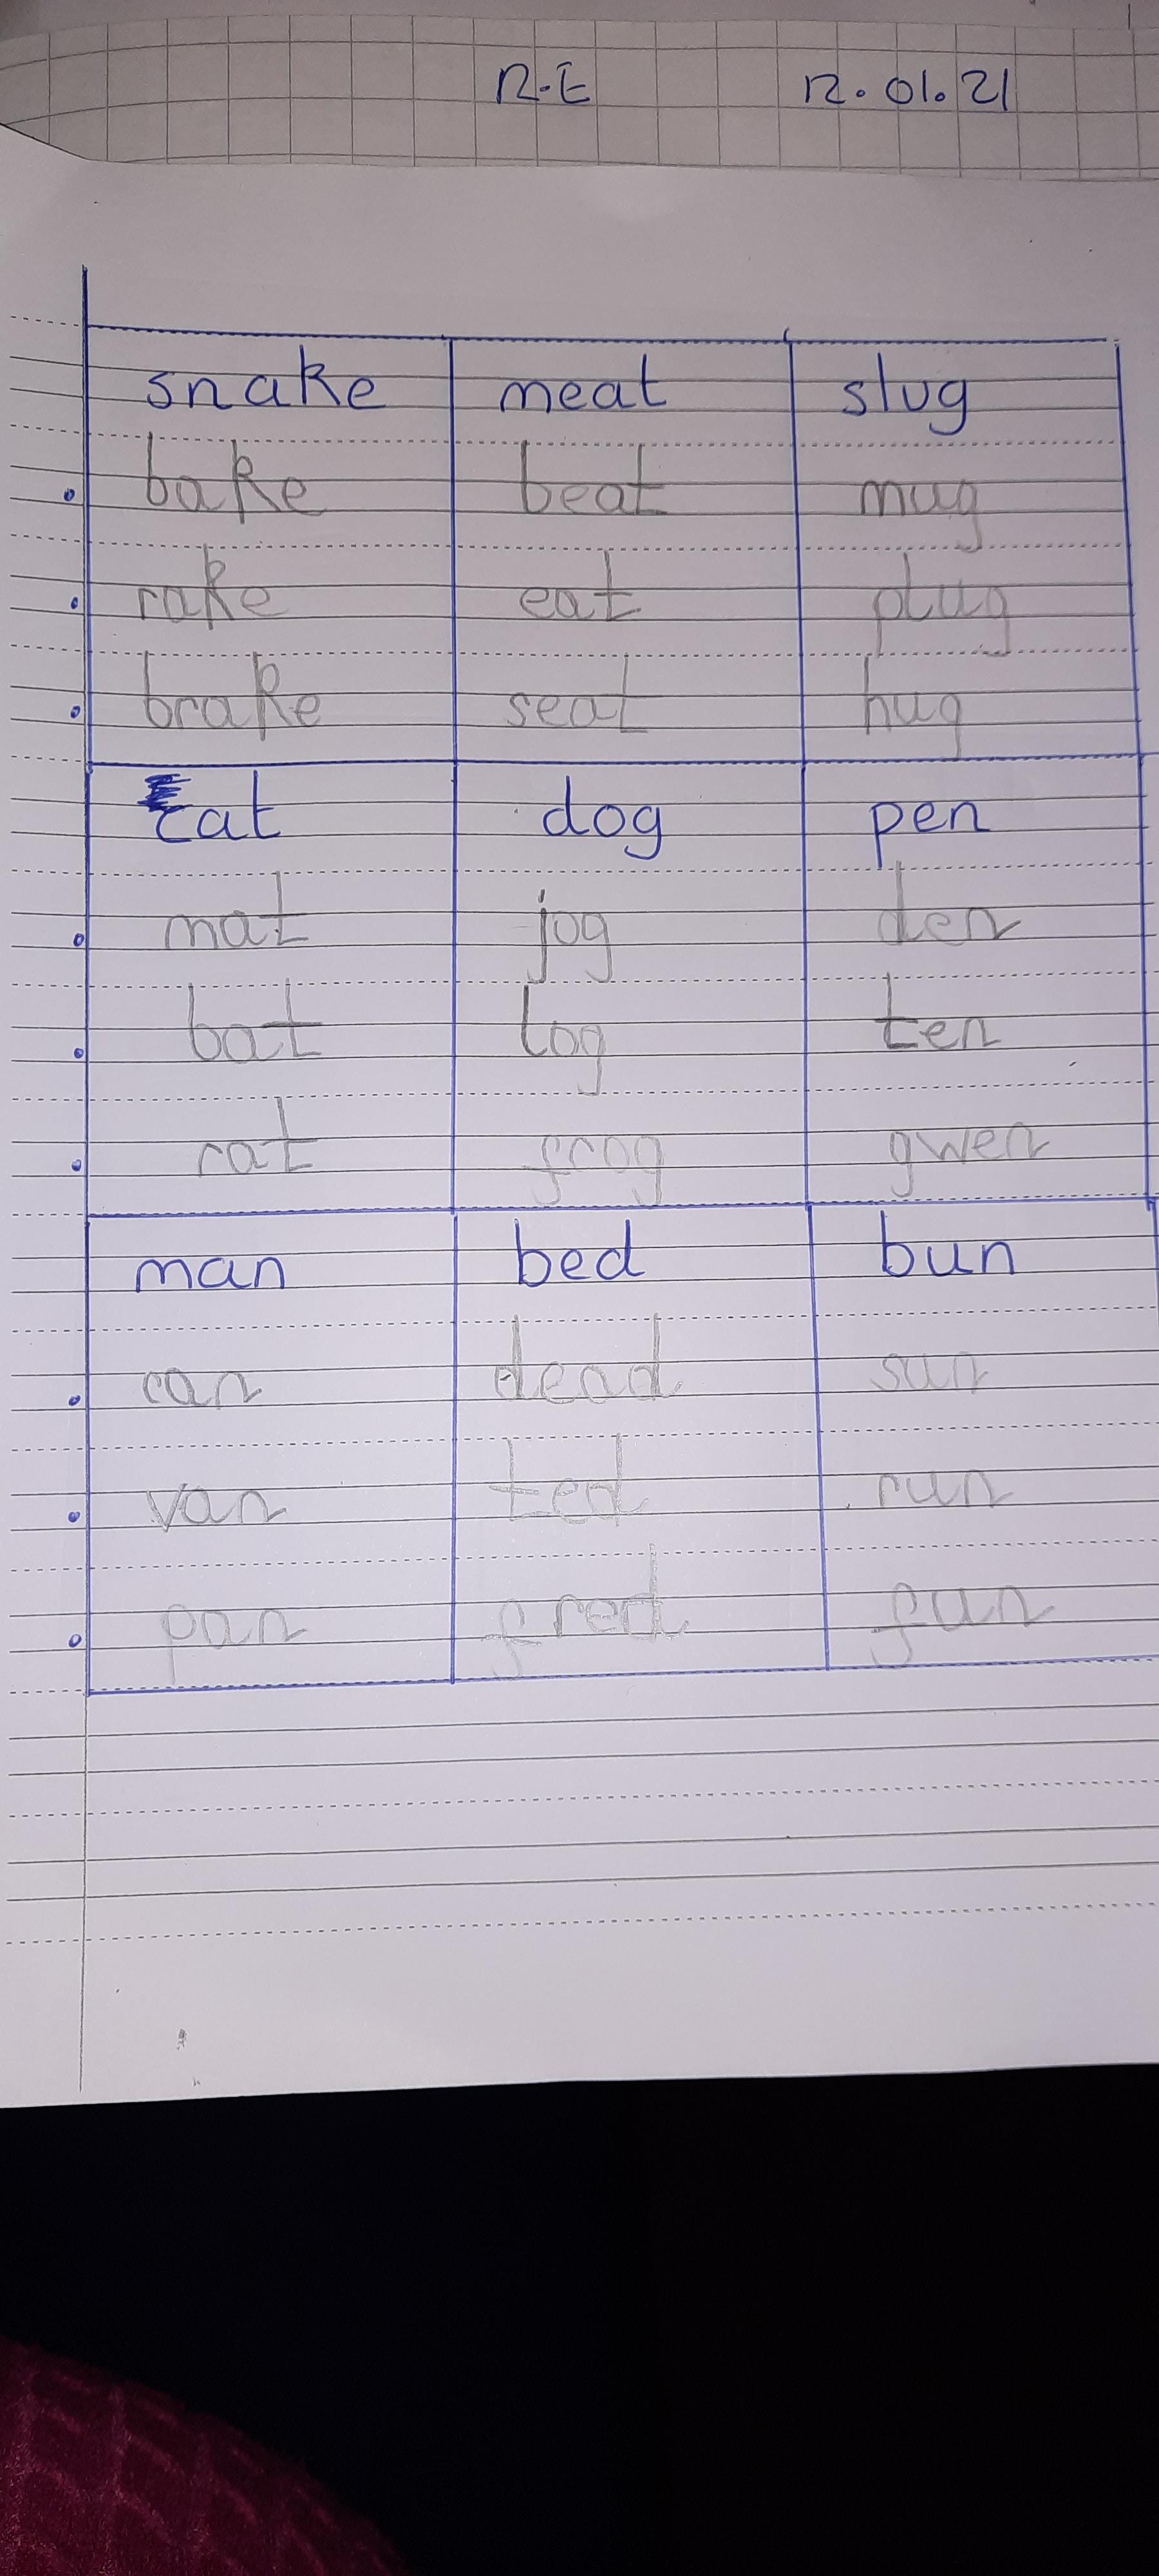 R.E 12.01.21
snake meat slug
bake beat mug
rake eat plug
brake seat hug
cat dog pen
mat jog den
bat log ten
rat frog gwen
man bed bun
can dead sun
van ted run
pan fred fun